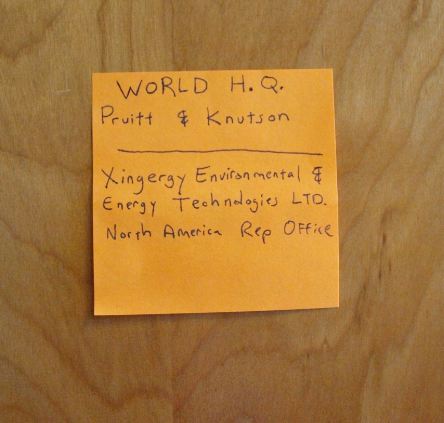 WORLD H.Q.
Pruitt & Knutson
Xingergy Environmental &
Energy Technologies LTD.
North America Rep Office